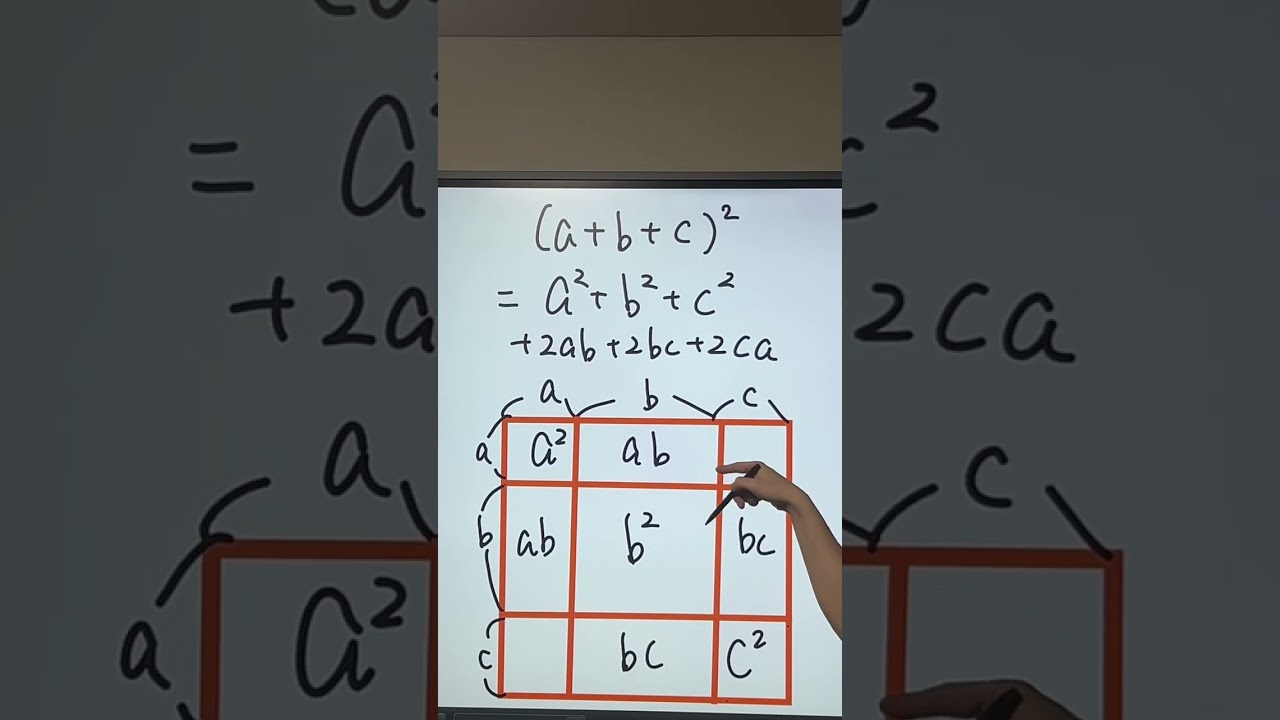 (a+b+c)²
= a²+b²+c²
+2ab+2bc+2ca
a b c
a a² ab
b ab b² bc
c bc c²